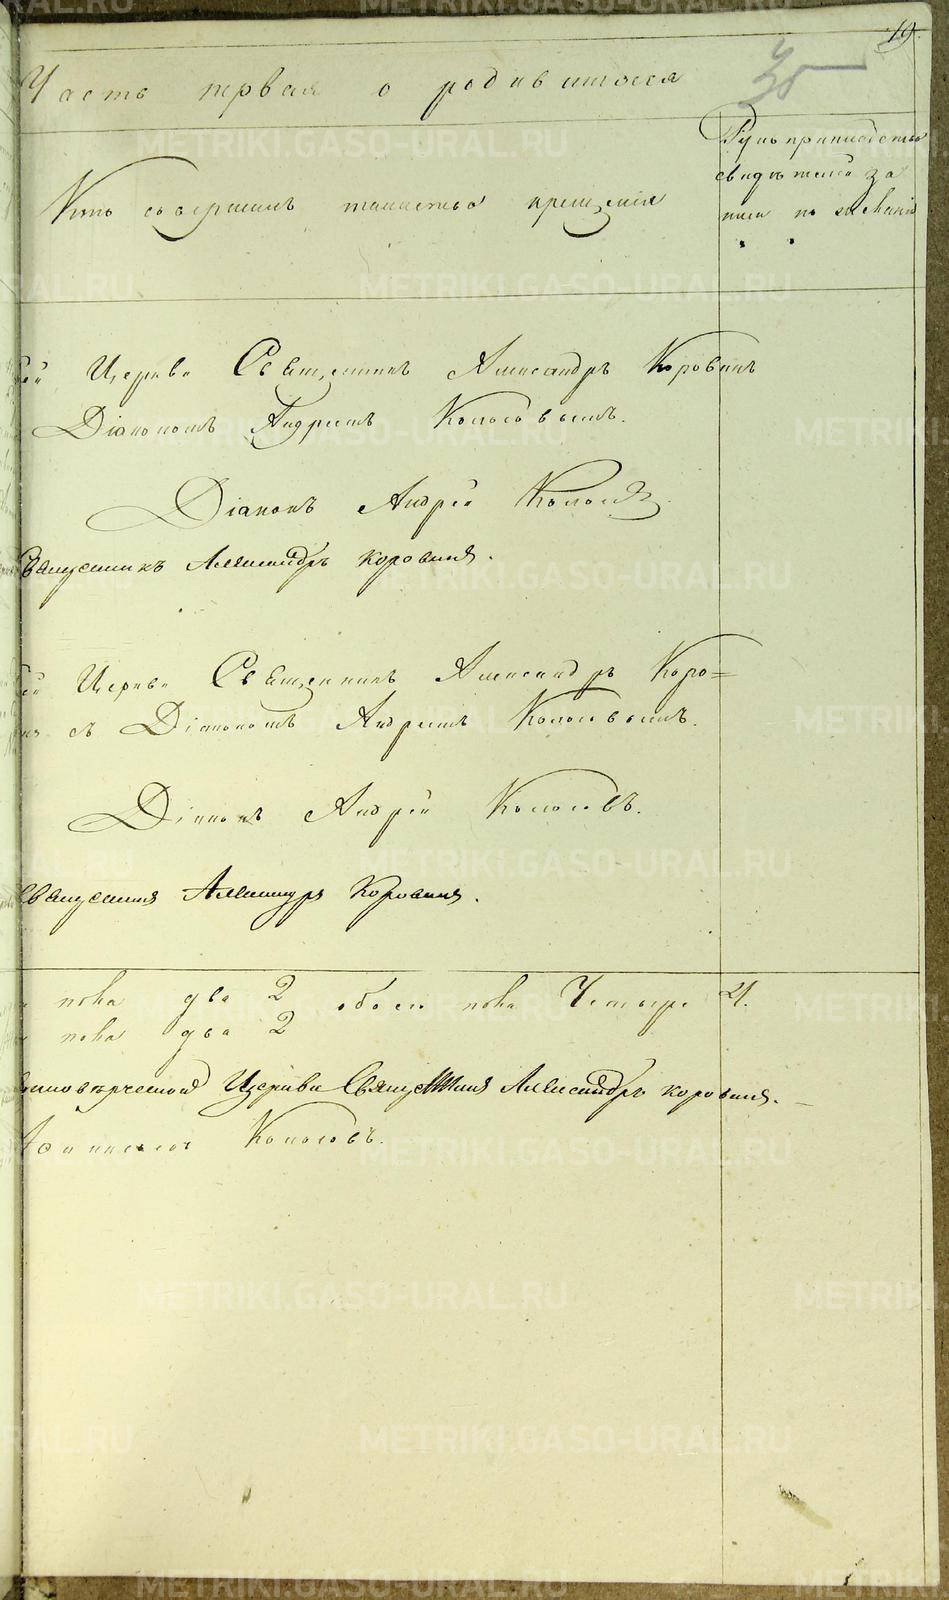 19.
35
Часть первая о родившихся
Кто совершилъ таинство крещенія
Рукоприкладство
свидѣтелей за
писи по желанію
Церкви Священникъ Александръ Коровинъ
Діакономъ Андреемъ Колосовымъ.
Діаконъ Андрей Колосовъ
Священникъ Александръ Коровинъ.
Церкви Священникъ Александръ Коро=
съ Діакономъ Андреемъ Колосовымъ.
Діаконъ Андрей Колосовъ.
Священникъ Александръ Коровинъ.
пола два 2 обоего пола Четыре 4.
пола два 2
Единовѣрческой Церкви Священникъ Александръ Коровинъ.
Колосовъ.
METRIKI.GASO-URAL.RU